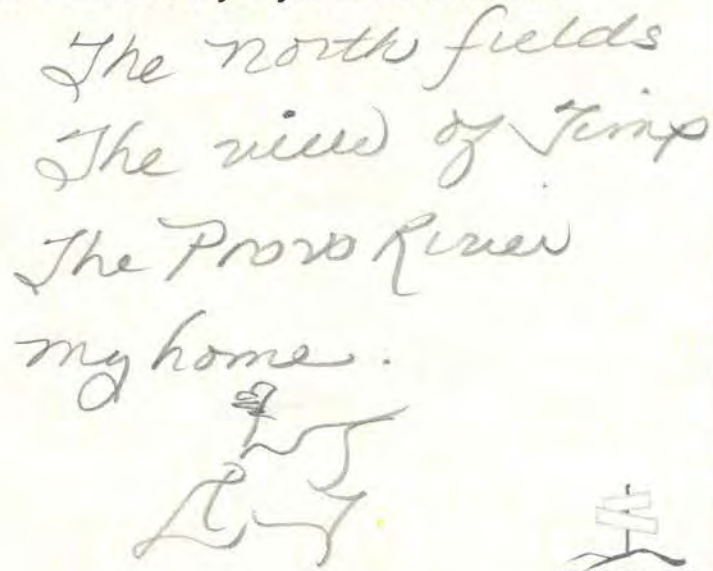 The north fields
The view of Timp
The Provo River
my home.